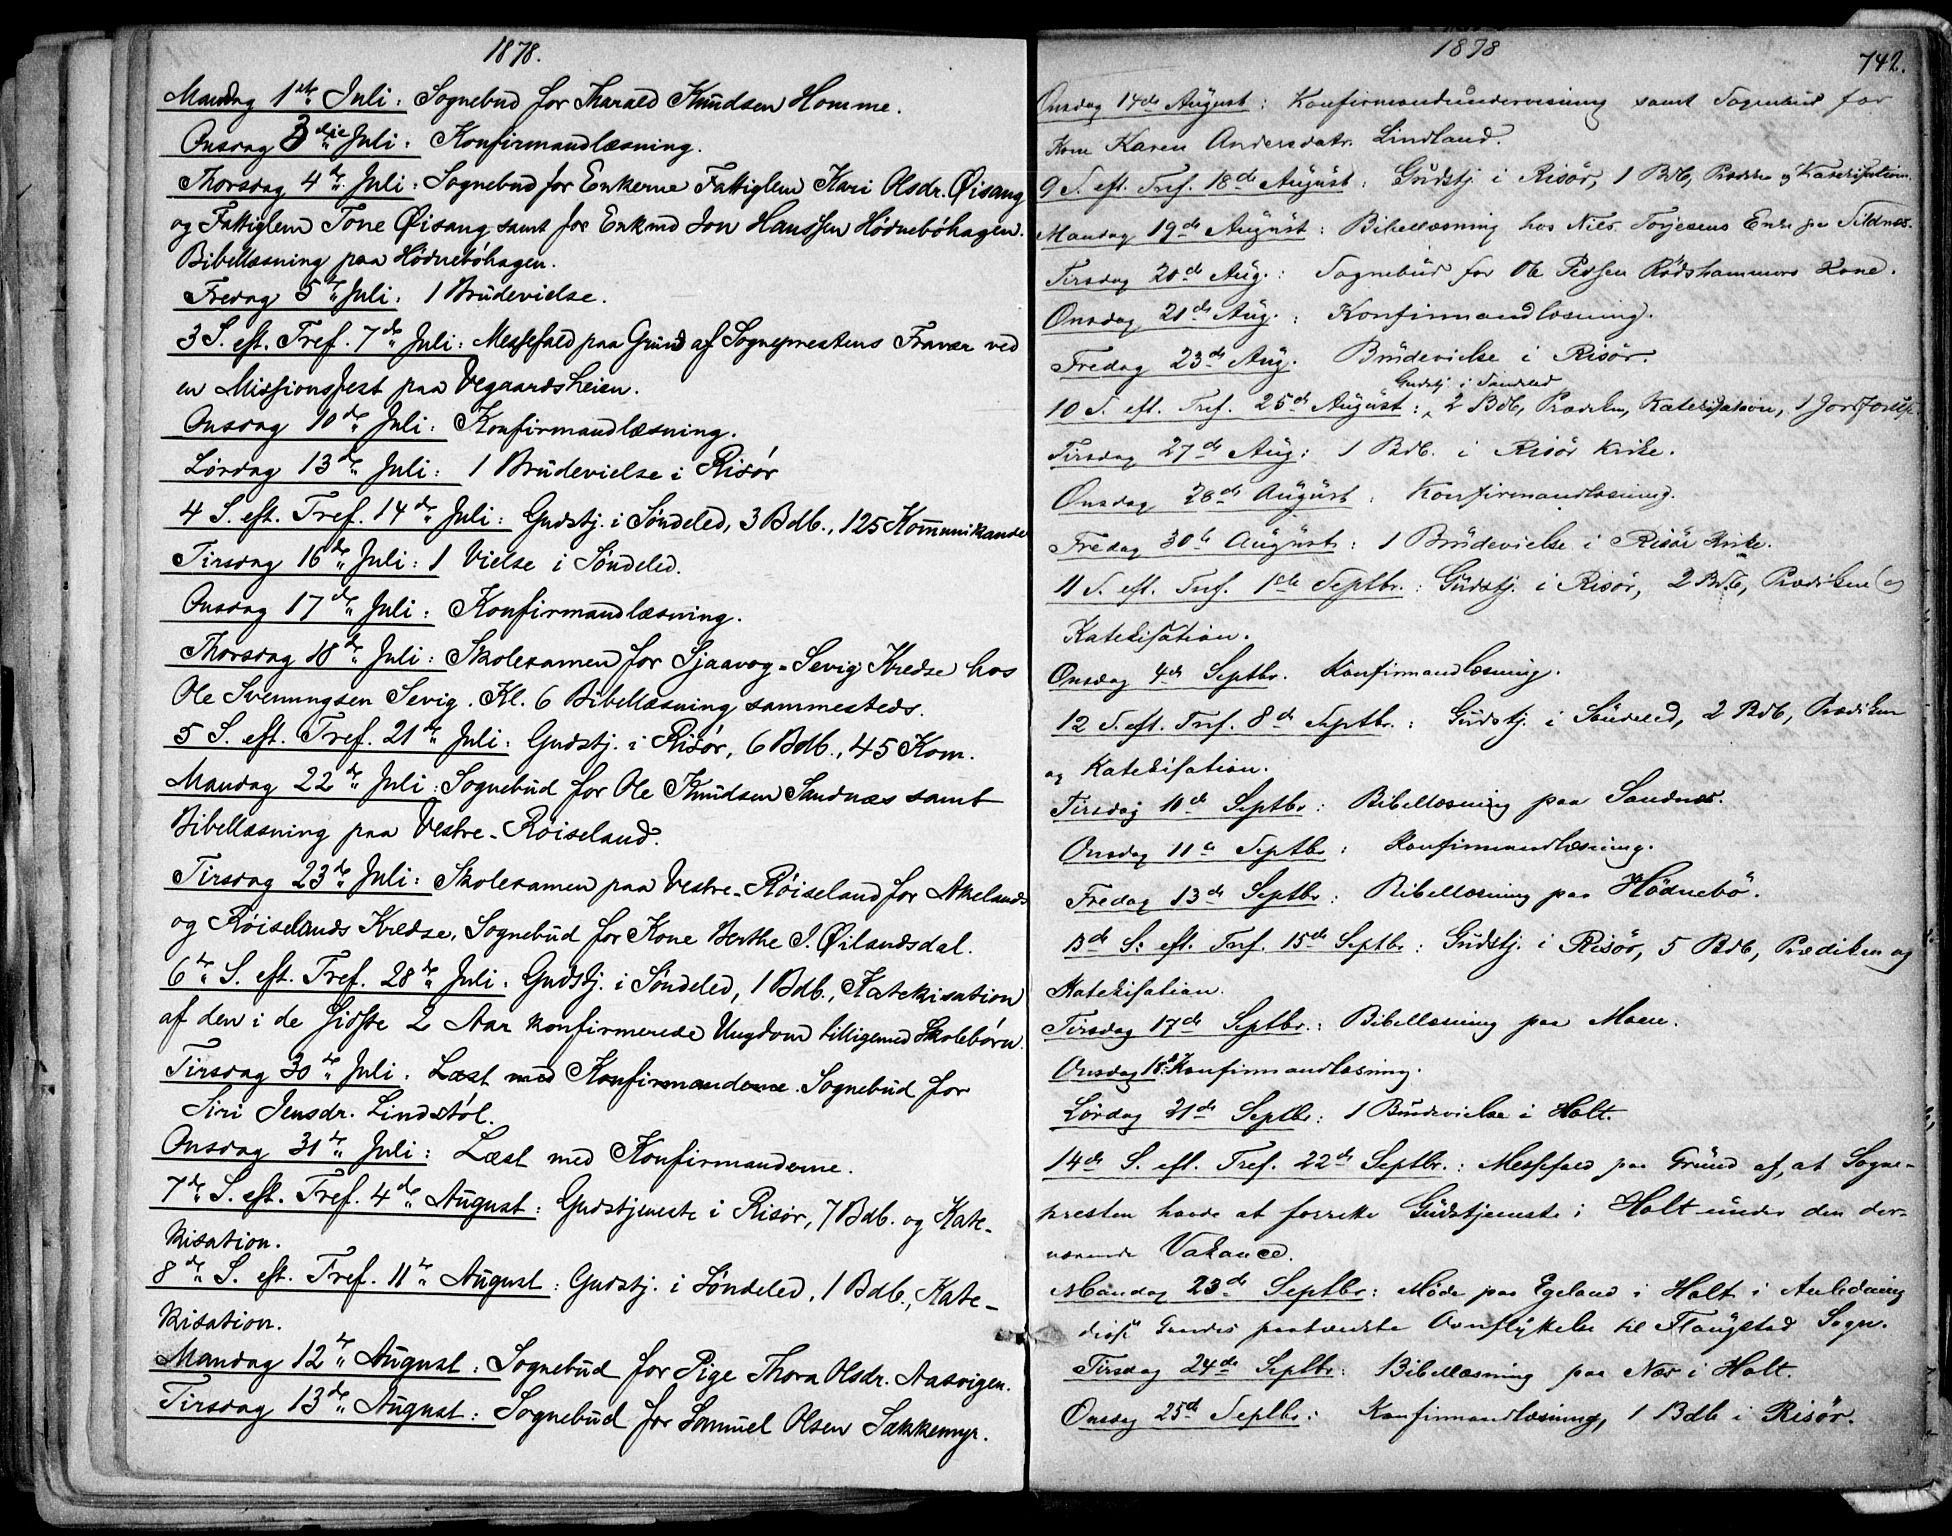 1878.
Mandag 1ste Juli: Sognebud for Tharald Knudsen Homme.
Onsdag 3die Juli: Konfirmandlæsning.
Thorsdag 4de Juli: Sognebud for Enkerne Fattiglem Kari Olsdr. Øisang
og Fattiglem Tone Øisang samt for Enkmd Jon Hanssen Hødnebøhagen.
Bibellæsning paa Hødnebøhagen.
Fredag 5te Juli: 1 Brudevielse.
3 S. eft. Tref. 7de Juli: Messefald paa Grund af Sogneprestens Fravær ved
en Missionsfest paa Vegaardsheien.
Onsdag 10de Juli: Konfirmandlæsning.
Lørdag 13de Juli: 1 Brudevielse i Risør
4 S. eft. Tref. 14de Juli: Gudstj. i Søndeled, 3 Bdb., 125 Kommunikander
Tirsdag 16de Juli: 1 Vielse i Søndeled.
Onsdag 17de Juli: Konfirmandlæsning.
Thorsdag 18de Juli: Skolexamen for Sjaavog-Sevig Kredse hos
Ole Svenningsen Sevig. Kl. 6 Bibellæsning sammesteds.
5 S. eft. Tref. 21de Juli: Gudstj. i Risør, 6 Bdb., 45 Kom.
Mandag 22de Juli: Sognebud for Ole Knudsen Sandnæs samt
Bibellæsning paa Vestre-Røiseland.
Tirsdag 23de Juli: Skolexamen paa Vestre-Røiseland for Akelands
og Røiselands Kredse. Sognebud for Kone Berthe J. Øilandsdal.
6te S. eft. Tref. 28de Juli: Gudstj. i Søndeled, 1 Bdb., Katekisation
af den i de sidste 2 Aar konfirmerede Ungdom tilligemed Skolebørn.
Tirsdag 30te Juli. Læst med Konfirmanderne. Sognebud for
Siri Jensdr. Lindstøl.
Onsdag 31te Juli: Læst med Konfirmanderne.
7de S. eft. Tref. 4de August: Gudstjeneste i Risør, 7 Bdb. og Kate-
kisation.
8de S. eft. Tref. 11te August: Gudstj. i Søndeled, 1 Bdb., Kate-
kisation.
Mandag 12te August: Sognebud for Pige Thora Olsdr. Aasvigen.
Tirsdag 13de August: Sognebud for Samuel Olsen Sakkemyr.
1878
742.
Onsdag 14de August: Konfirmandundervisning samt Sognebud for
Kone Karen Andersdatr. Lindland.
9 S. eft. Tref. 18de August: Gudstj. i Risør, 1 Bdb, Prædiken og Katekisation.
Mandag 19de August: Bibellæsning hos Nils Torjesens Enke paa Sildnæs.
Tirsdag 20de Aug.: Sognebud for Ole Pedersen Rødshammers Kone.
Onsdag 21de Aug.: Konfirmandlæsning.
Fredag 23de Aug. Brudevielse i Risör.
Gudstj. i Søndeled
10 S. eft. Tref. 25de August: 2 Bdb, Prædiken, Katekisation, 1 Jordfæstelse.
Tirsdag 27de Aug: 1 Bdb. i Risör Kirke.
Onsdag 28de August: Konfirmandlæsning.
Fredag 30te August: 1 Brudevielse i Risör Kirke.
11 S. eft. Tref. 1ste Septbr.: Gudstj. i Risör, 2 Bdb, Prædiken og
Katekisation.
Onsdag 4de Septbr. Konfirmandlæsning.
12 S. eft. Tref. 8de Septbr.: Gudstj. i Söndeled, 2 Bdb, Prædiken
og Katekisation.
Tirsdag 10de Septbr: Bibellæsning paa Sandnæs.
Onsdag 11te Septbr: Konfirmandlæsning.
Fredag 13de Septbr: Bibellæsning paa Hödnebö.
13de S. eft. Tref. 15de Septbr: Gudstj. i Risör, 5 Bdb, Prædiken og
Katekisation.
Tirsdag 17de Septbr.: Bibellæsning paa Moen.
Onsdag 18de Konfirmandlæsning.
Lørdag 21de Septbr: 1 Brudevielse i Holt.
14de S. eft. Tref. 22de Septbr.: Messefald paa Grund af, at Sogne-
presten havde at forrette Gudstjeneste i Holt under den der-
værende Vakance.
Mandag 23de Septbr: Møde paa Egeland i Holt i Anledning
disse Gaardes paatænkte Overflyttelse til Flaugstad Sogn.
Tirsdag 24de Septbr: Bibellæsning paa Næs i Holt.
Onsdag 25de Septbr: Konfirmandlæsning, 1 Bdb i Risör.